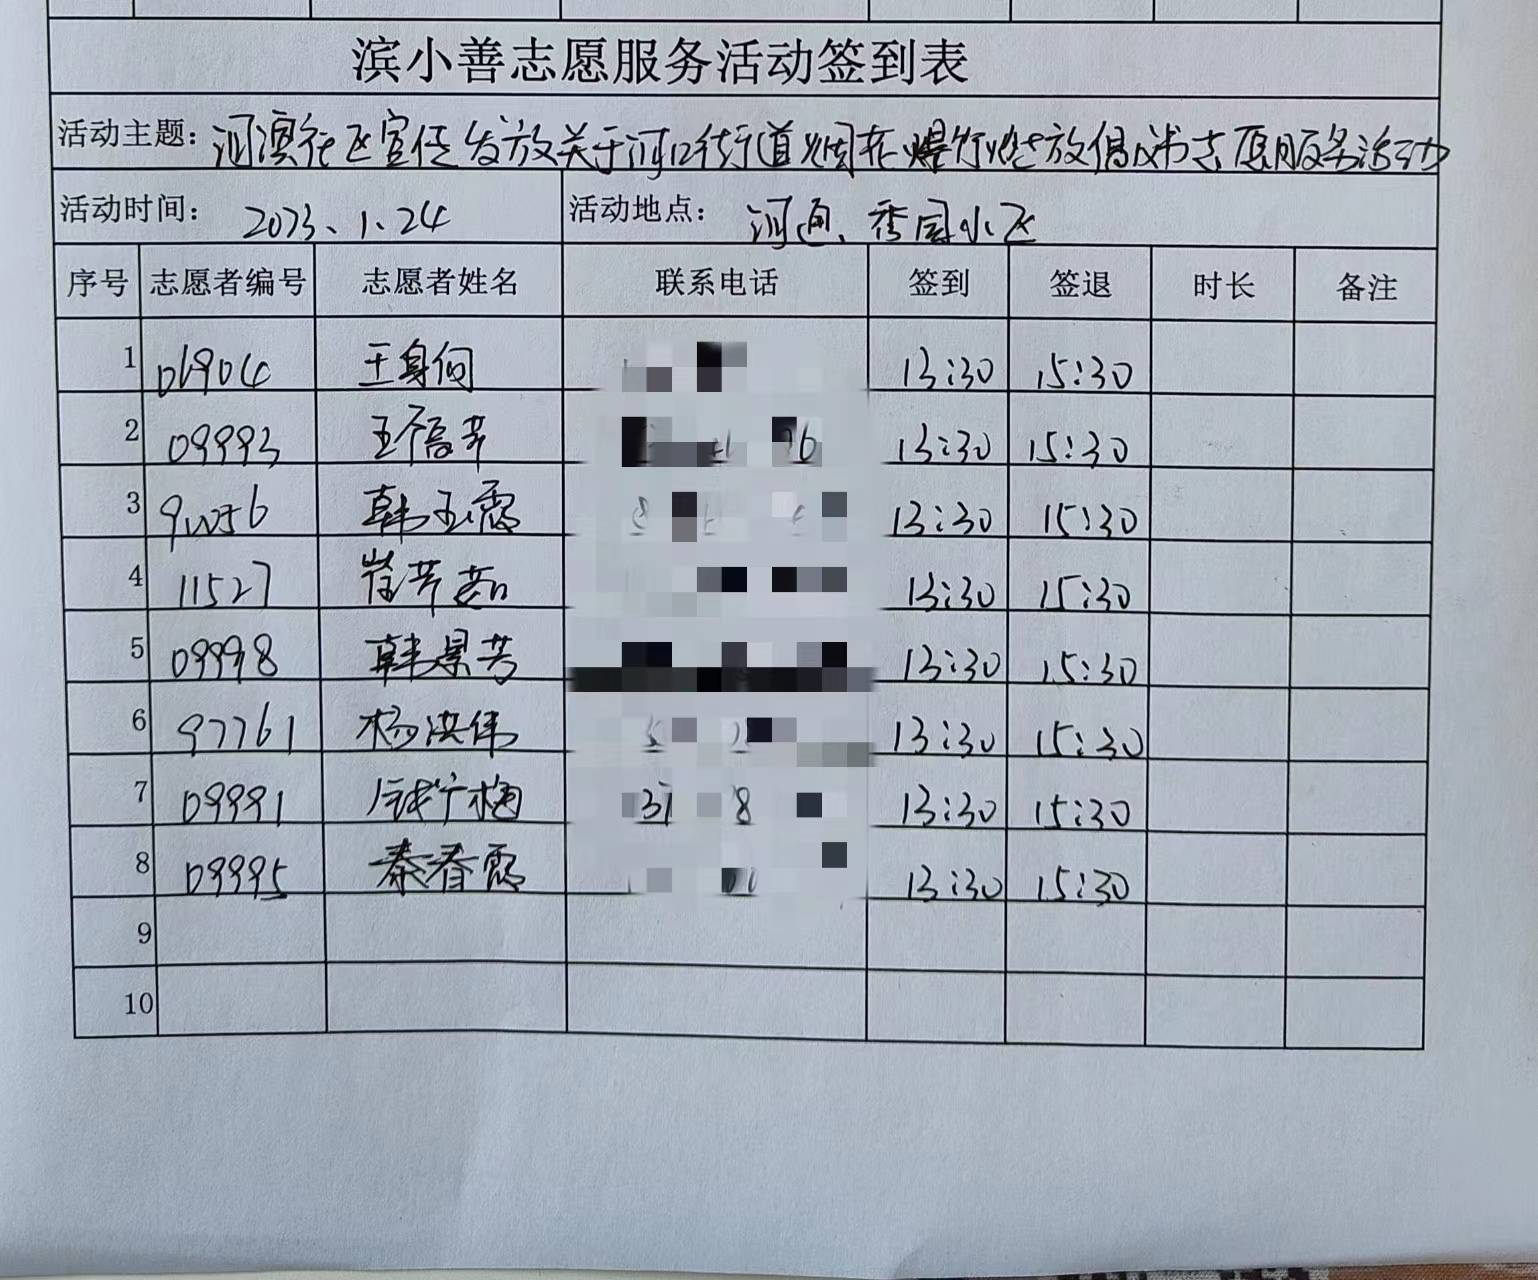 滨小善志愿服务活动签到表
活动主题: 河滨社区宣传发放关于河口街道烟花爆竹燃放倡议书志愿服务活动
活动时间: 2023、1、24 活动地点: 河通、秀园小区
序号 志愿者编号 志愿者姓名 联系电话 签到 签退 时长 备注
1 01904 13:30 15:30
2 09993 13:30 15:30
3 韩玉霞 13:30 15:30
4 11527 崔芳茹 13:30 15:30
5 09998 韩景芳 13:30 15:30
6 97761 杨洪伟 13:30 15:30
7 09991 13:30 15:30
8 09995 秦春霞 13:30 15:30
9
10